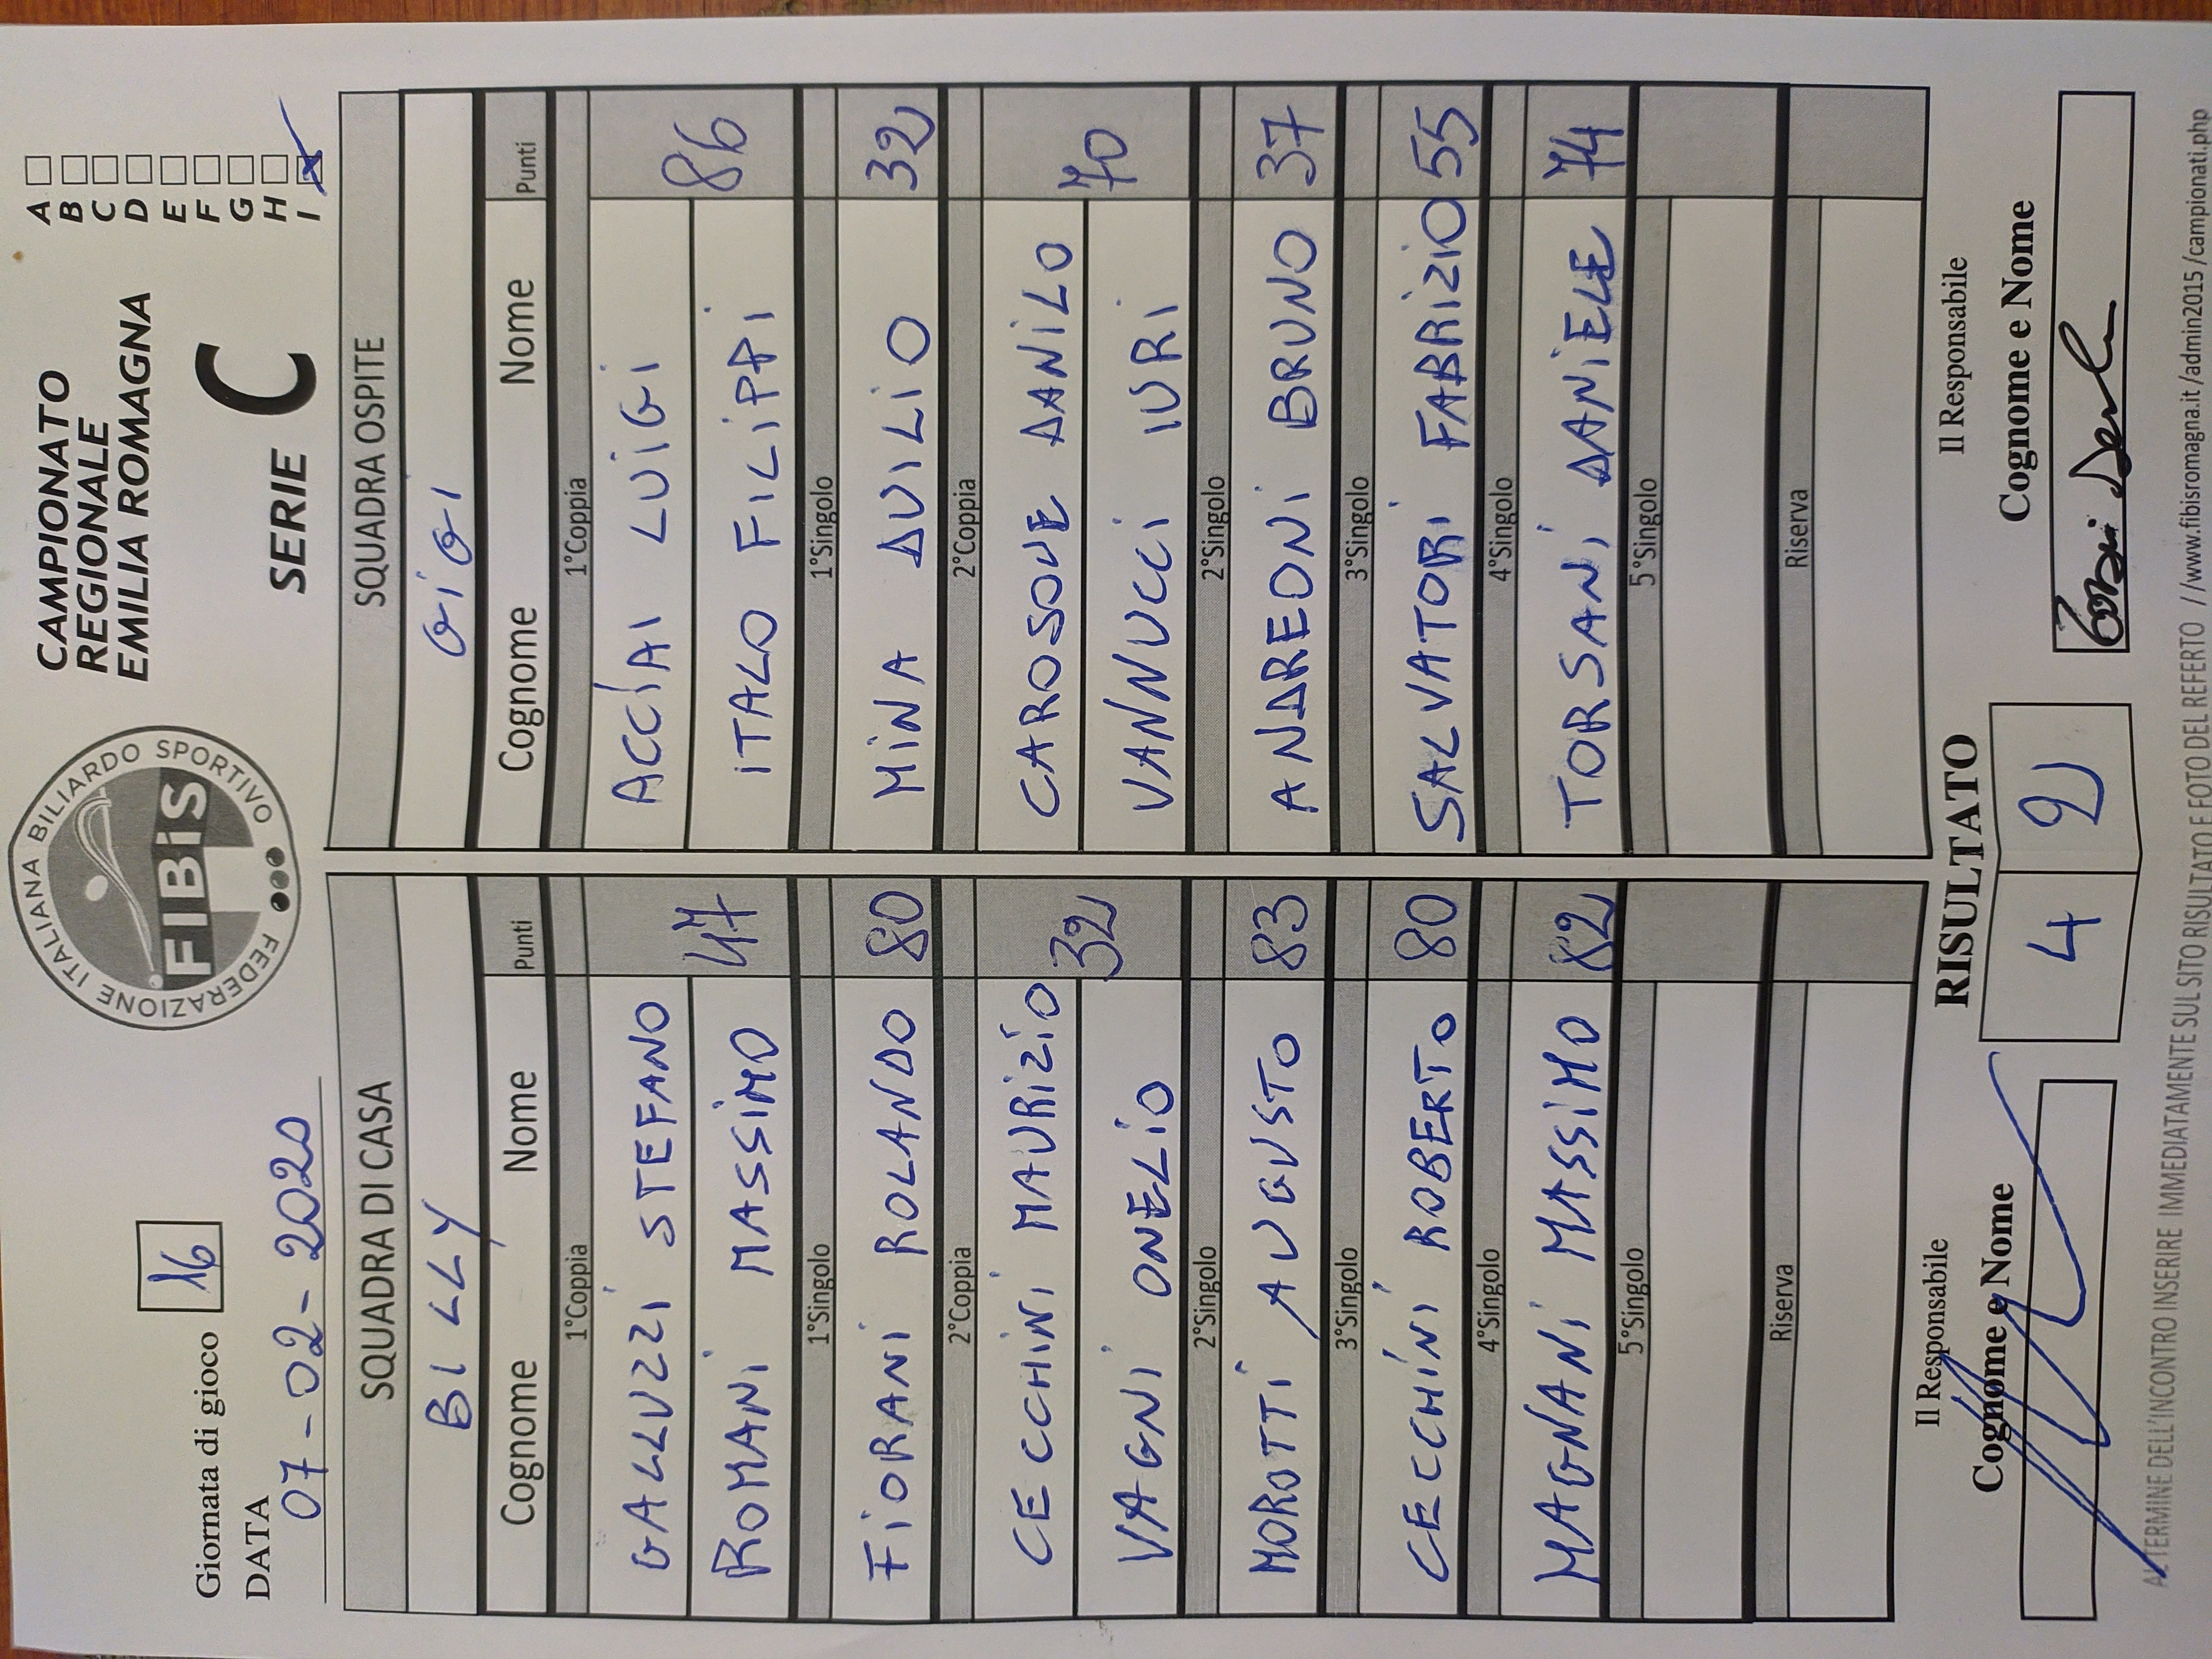 Giornata di gioco 16
DATA 07-02-2020
FEDERAZIONE ITALIANA BILIARDO SPORTIVO
FIBiS
CAMPIONATO
REGIONALE
EMILIA ROMAGNA
SERIE C
A
B
C
D
E
F
G
H
I
SQUADRA DI CASA
BILLY
Cognome Nome Punti
1°Coppia
GALLUZZI STEFANO
ROMANI MASSIMO 47
1°Singolo
FIORANI ROLANDO 80
2°Coppia
CECCHINI MAURIZIO
VAGNI ONELIO 32
2°Singolo
MOROTTI AUGUSTO 83
3°Singolo
CECCHINI ROBERTO 80
4°Singolo
MAGNANI MASSIMO 82
5°Singolo
Riserva
SQUADRA OSPITE
GIGI
Cognome Nome Punti
1°Coppia
ACCIAI LUIGI
ITALO FILIPPI 86
1°Singolo
MINA DUILIO 32
2°Coppia
CAROSOUE DANILO
VANNUCCI IURI 70
2°Singolo
ANDREONI BRUNO 37
3°Singolo
SALVATORI FABRIZIO 55
4°Singolo
TORSANI DANIELE 74
5°Singolo
Riserva
Il Responsabile
Cognome e Nome
RISULTATO
4 2
Il Responsabile
Cognome e Nome
AL TERMINE DELL'INCONTRO INSERIRE IMMEDIATAMENTE SUL SITO RISULTATO E FOTO DEL REFERTO //www.fibisromagna.it/admin2015/campionati.php